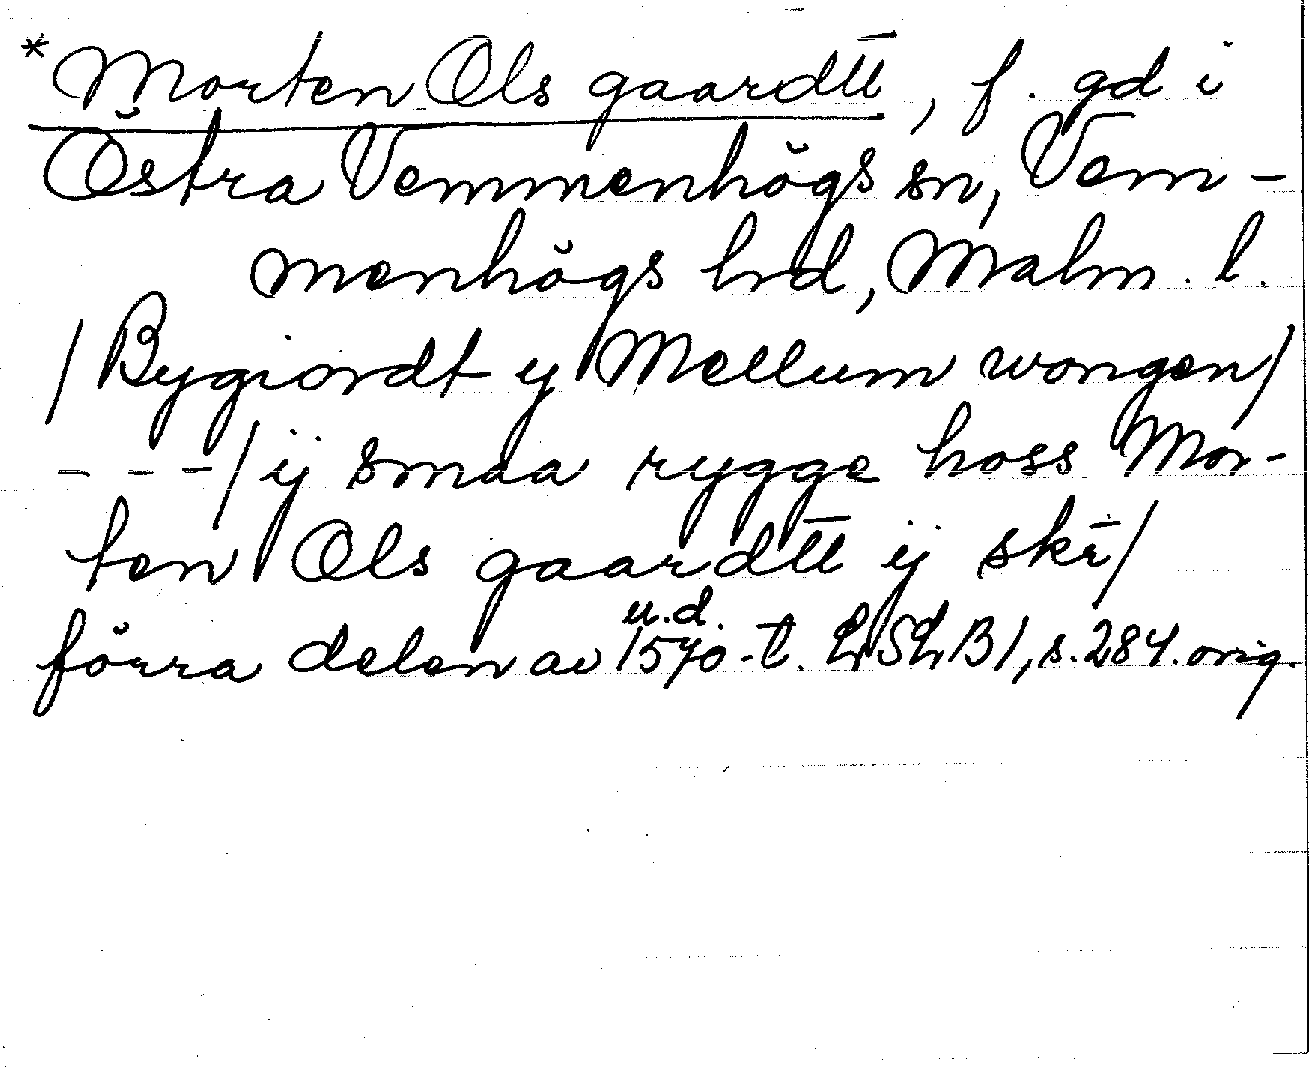 *Morten Ols gaardtt̄, f. gd i
Östra Vemmenhögs sn, Vem-
menhögs hrd, Malm. l.
/Bygiordt y Mellum wongen/
---/ ij smaa rygge hoss Mor-
ten Ols gaardtt̄ ij ski/
u.d.
förra delen av 1570-t. LSLB1, s. 284. orig.